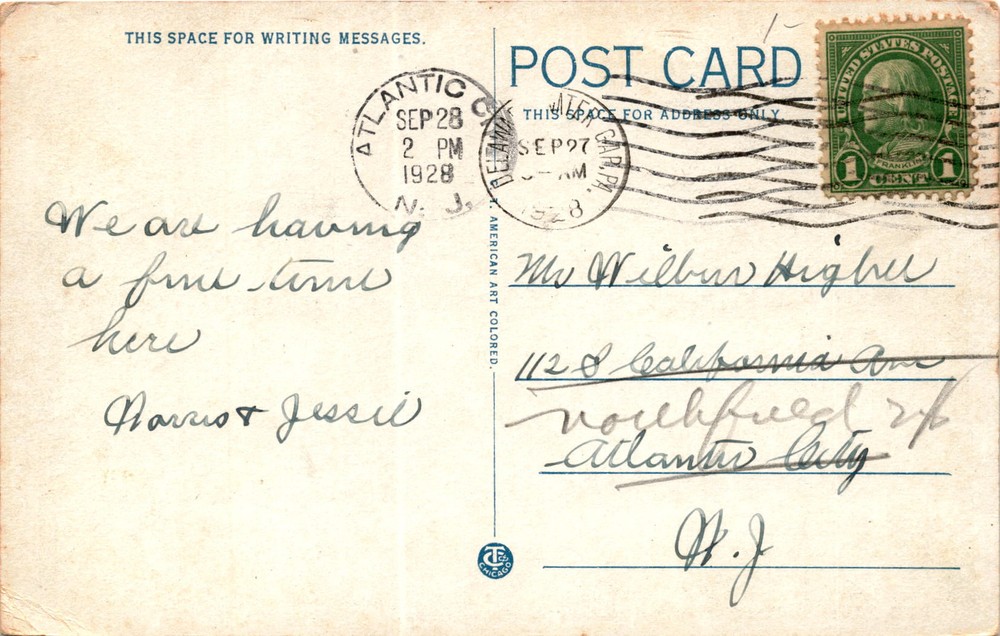 THIS SPACE FOR WRITING MESSAGES.
POST CARD
THIS SPACE FOR ADDRESS ONLY.
1-
UNITED STATES POSTAGE
FRANKLIN
1 CENT 1
ATLANTIC C
SEP 28
2 PM
1928
N. J.
DELAWARE WATER GAP, PA.
SEP 27
AM
1928
AMERICAN ART COLORED.
We are having
a fine time
here
Norris & Jessie
Mr Wilbur Higbee
112 S California Ave
northfield N J
Atlantic City
N. J
CT Co
CHICAGO